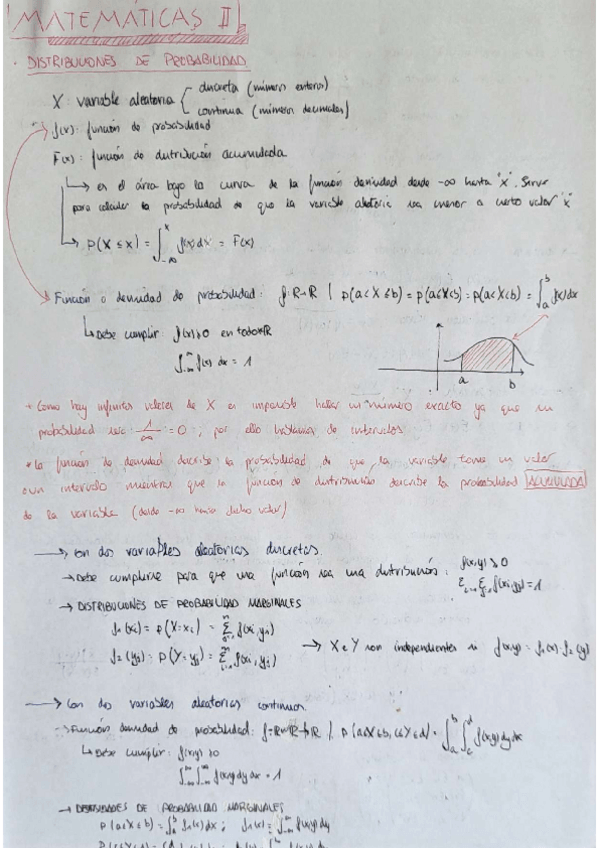 MATEMÁTICAS II
· DISTRIBUCIONES DE PROBABILIDAD
X: variable aleatoria { discreta (números enteros)
continua (números decimales)
f(x): función de probabilidad
F(x): función de distribución acumulada
↳ es el área bajo la curva de la función densidad desde -∞ hasta "x". Sirve
para calcular la probabilidad de que la variable aleatoria sea menor a cierto valor "x"
↳ P(X ≤ x) = ∫_{-∞}^{x} f(x) dx = F(x)
Función o densidad de probabilidad: f: R→R / p(a<X≤b) = p(a≤X<b) = p(a<X<b) = ∫_a^b f(x) dx
↳ Debe cumplir: f(x) ≥ 0 en todo R
∫_{-∞}^{∞} f(x) dx = 1
a b
* Como hay infinitos valores de X es imposible hallar un número exacto ya que su
probabilidad sería 1/∞ = 0, por ello hablamos de intervalos
* la función de densidad describe la probabilidad de que la variable tome un valor
en un intervalo mientras que la función de distribución describe la probabilidad ACUMULADA
de la variable (desde -∞ hasta dicho valor)
→ Con dos variables aleatorias discretas.
→ Debe cumplirse para que una función sea una distribución: f(x,y) ≥ 0
Σ Σ f(xi,yj) = 1
→ DISTRIBUCIONES DE PROBABILIDAD MARGINALES
f1(xi) = p(X=xi) = Σ f(xi,yj)
f2(yj) = p(Y=yj) = Σ f(xi,yj) → X e Y son independientes si f(x,y) = f1(x)·f2(y)
→ Con dos variables aleatorias continuas.
→ Función densidad de probabilidad: f: R×R→R / p(a≤X≤b, c≤Y≤d) = ∫_a^b ∫_c^d f(x,y) dy dx
↳ Debe cumplir: f(x,y) ≥ 0
∫_{-∞}^{∞} ∫_{-∞}^{∞} f(x,y) dy dx = 1
→ DENSIDADES DE PROBABILIDAD MARGINALES
P(a≤X≤b) = ∫_a^b f1(x) dx ; f1(x) = ∫_{-∞}^{∞} f(x,y) dy